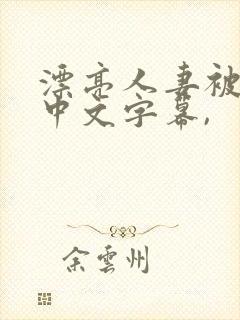 漂亮人妻被
中文字幕,
余雲州